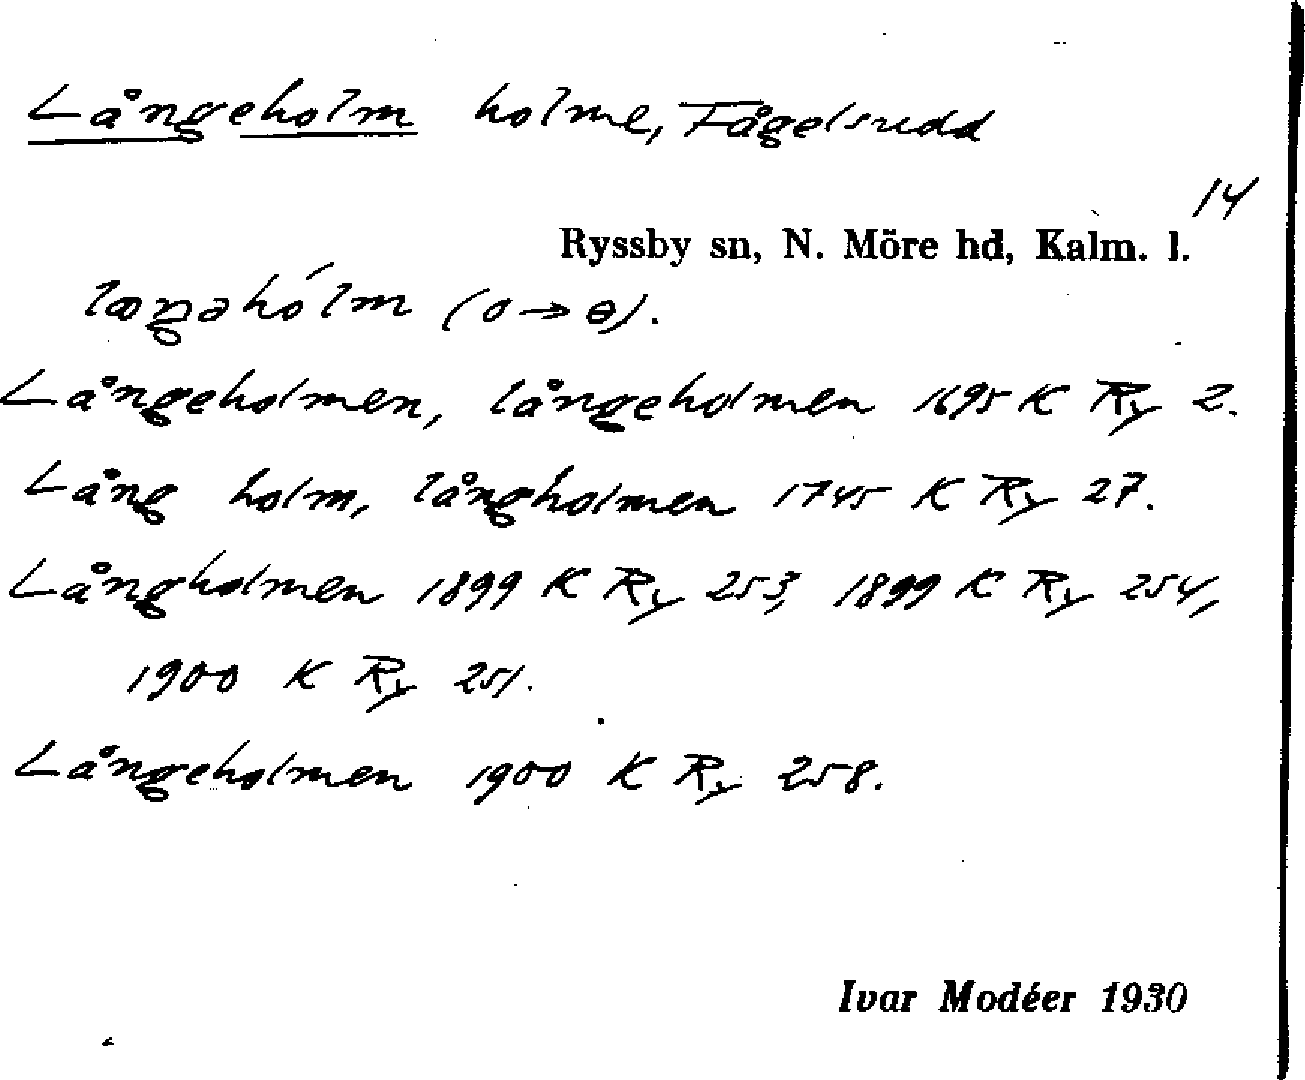 Långeholm holme, Fågelsudd
14
Ryssby sn, N. Möre hd, Kalm. l.
(o → ɵ).
Långeholmen, långeholmen 1695 K Ry 2.
Lång holm, långholmen 1745 K Ry 27.
Långholmen 1899 K Ry 253, 1899 K Ry 254,
1900 K Ry 251.
Långeholmen 1900 K Ry 258.
Ivar Modéer 1930